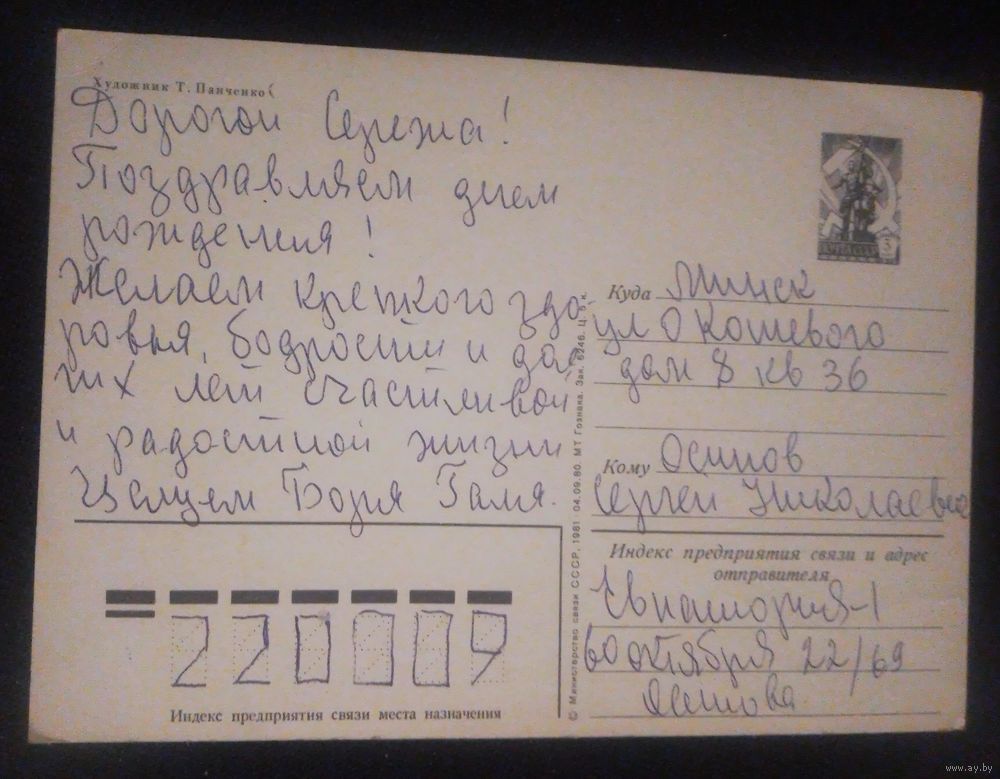 Художник Т. Панченко
Дорогой Сережа!
Поздравляем днем
рождения!
Желаем крепкого здо-
ровья, бодрости и дол
гих лет счастливой
и радостной жизни
Целуем Боря Галя.
Куда Минск
ул О Кошевого
дом 8 кв 36
Кому Осипов
Сергей Николаевич
Индекс предприятия связи и адрес
отправителя
Евпатория-1
60 октября 22/69
Осипова
220009
Индекс предприятия связи места назначения
© Министерство связи СССР, 1981 04.09.80. МТ Гознака. Зак. 6246. Ц. 5 к.
ПОЧТА СССР 3
www.ay.by